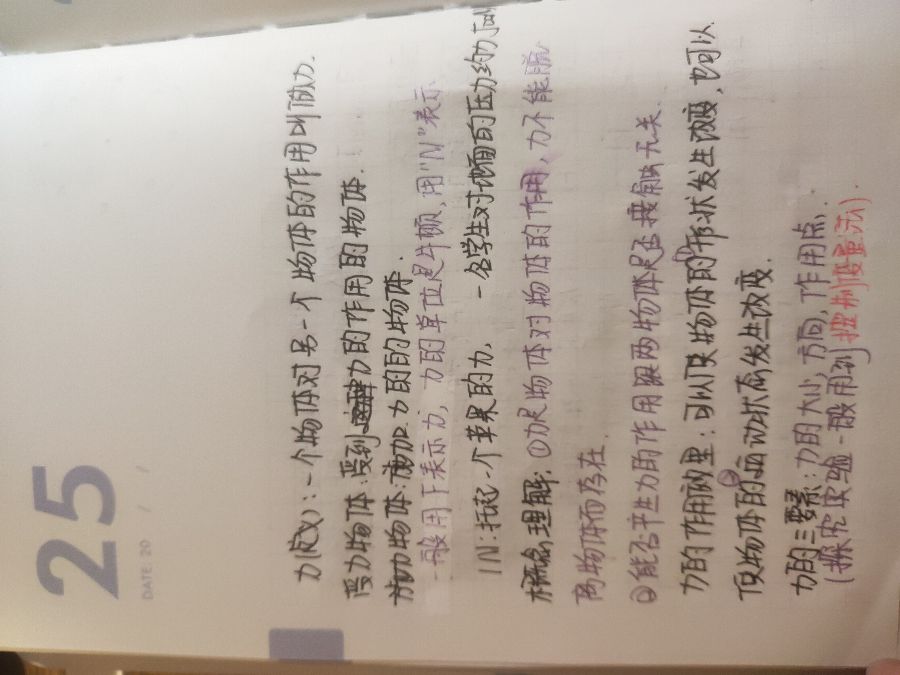 25
DATE: 20 / /
力(定义):一个物体对另一个物体的作用叫做力.
受力物体:受到力的作用的物体.
施力物体:施加力的的物体.
一般用F表示力,力的单位是牛顿,用"N"表示
1N:托起一个苹果的力,一名学生对地面的压力约为
概念理解:①力是物体对物体的作用,力不能脱
离物体而存在.
②能否产生力的作用跟两物体是否接触无关.
力的作用效里:可以使物体的①形状发生改变,也可以
使物体的②运动状态发生改变.
力的三要素:力的大小,方向,作用点,
(探究实验一般用到控制变量法)